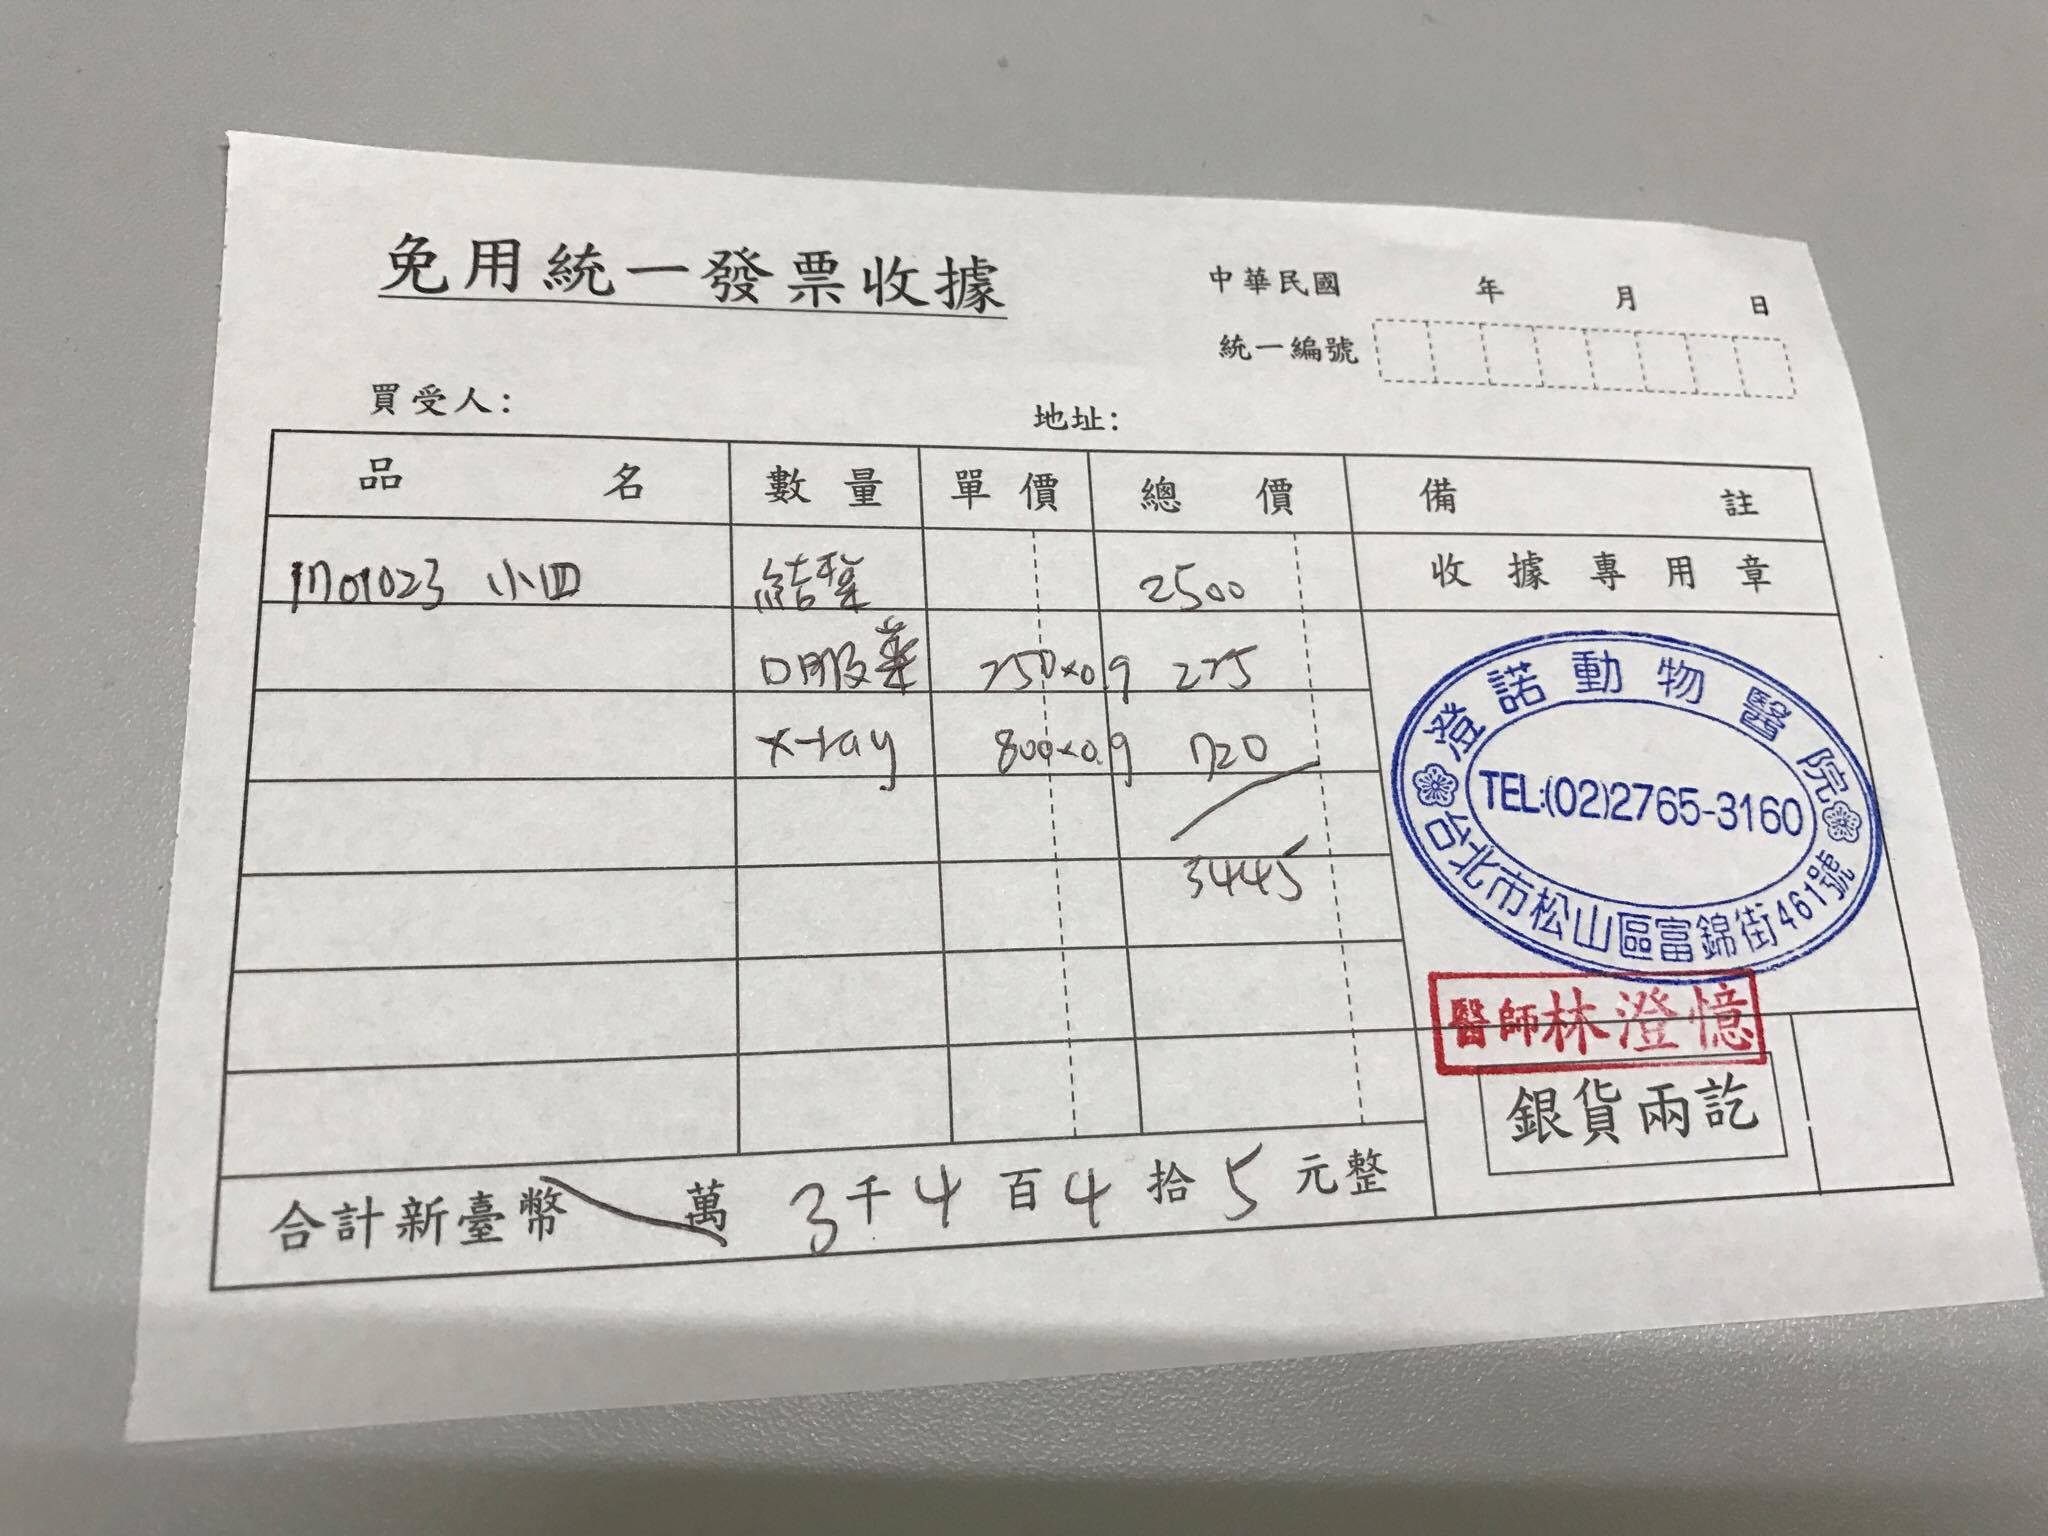 免用統一發票收據
中華民國 年 月 日
統一編號
買受人： 地址：
品名 數量 單價 總價 備註
收據專用章
1701023 小四 結紮 2500
口服藥 250×0.9 225
X-ray 800×0.9 720
3445
澄諾動物醫院
TEL:(02)2765-3160
台北市松山區富錦街461號
醫師林澄憶
銀貨兩訖
合計新臺幣 萬 3千4百4拾5元整